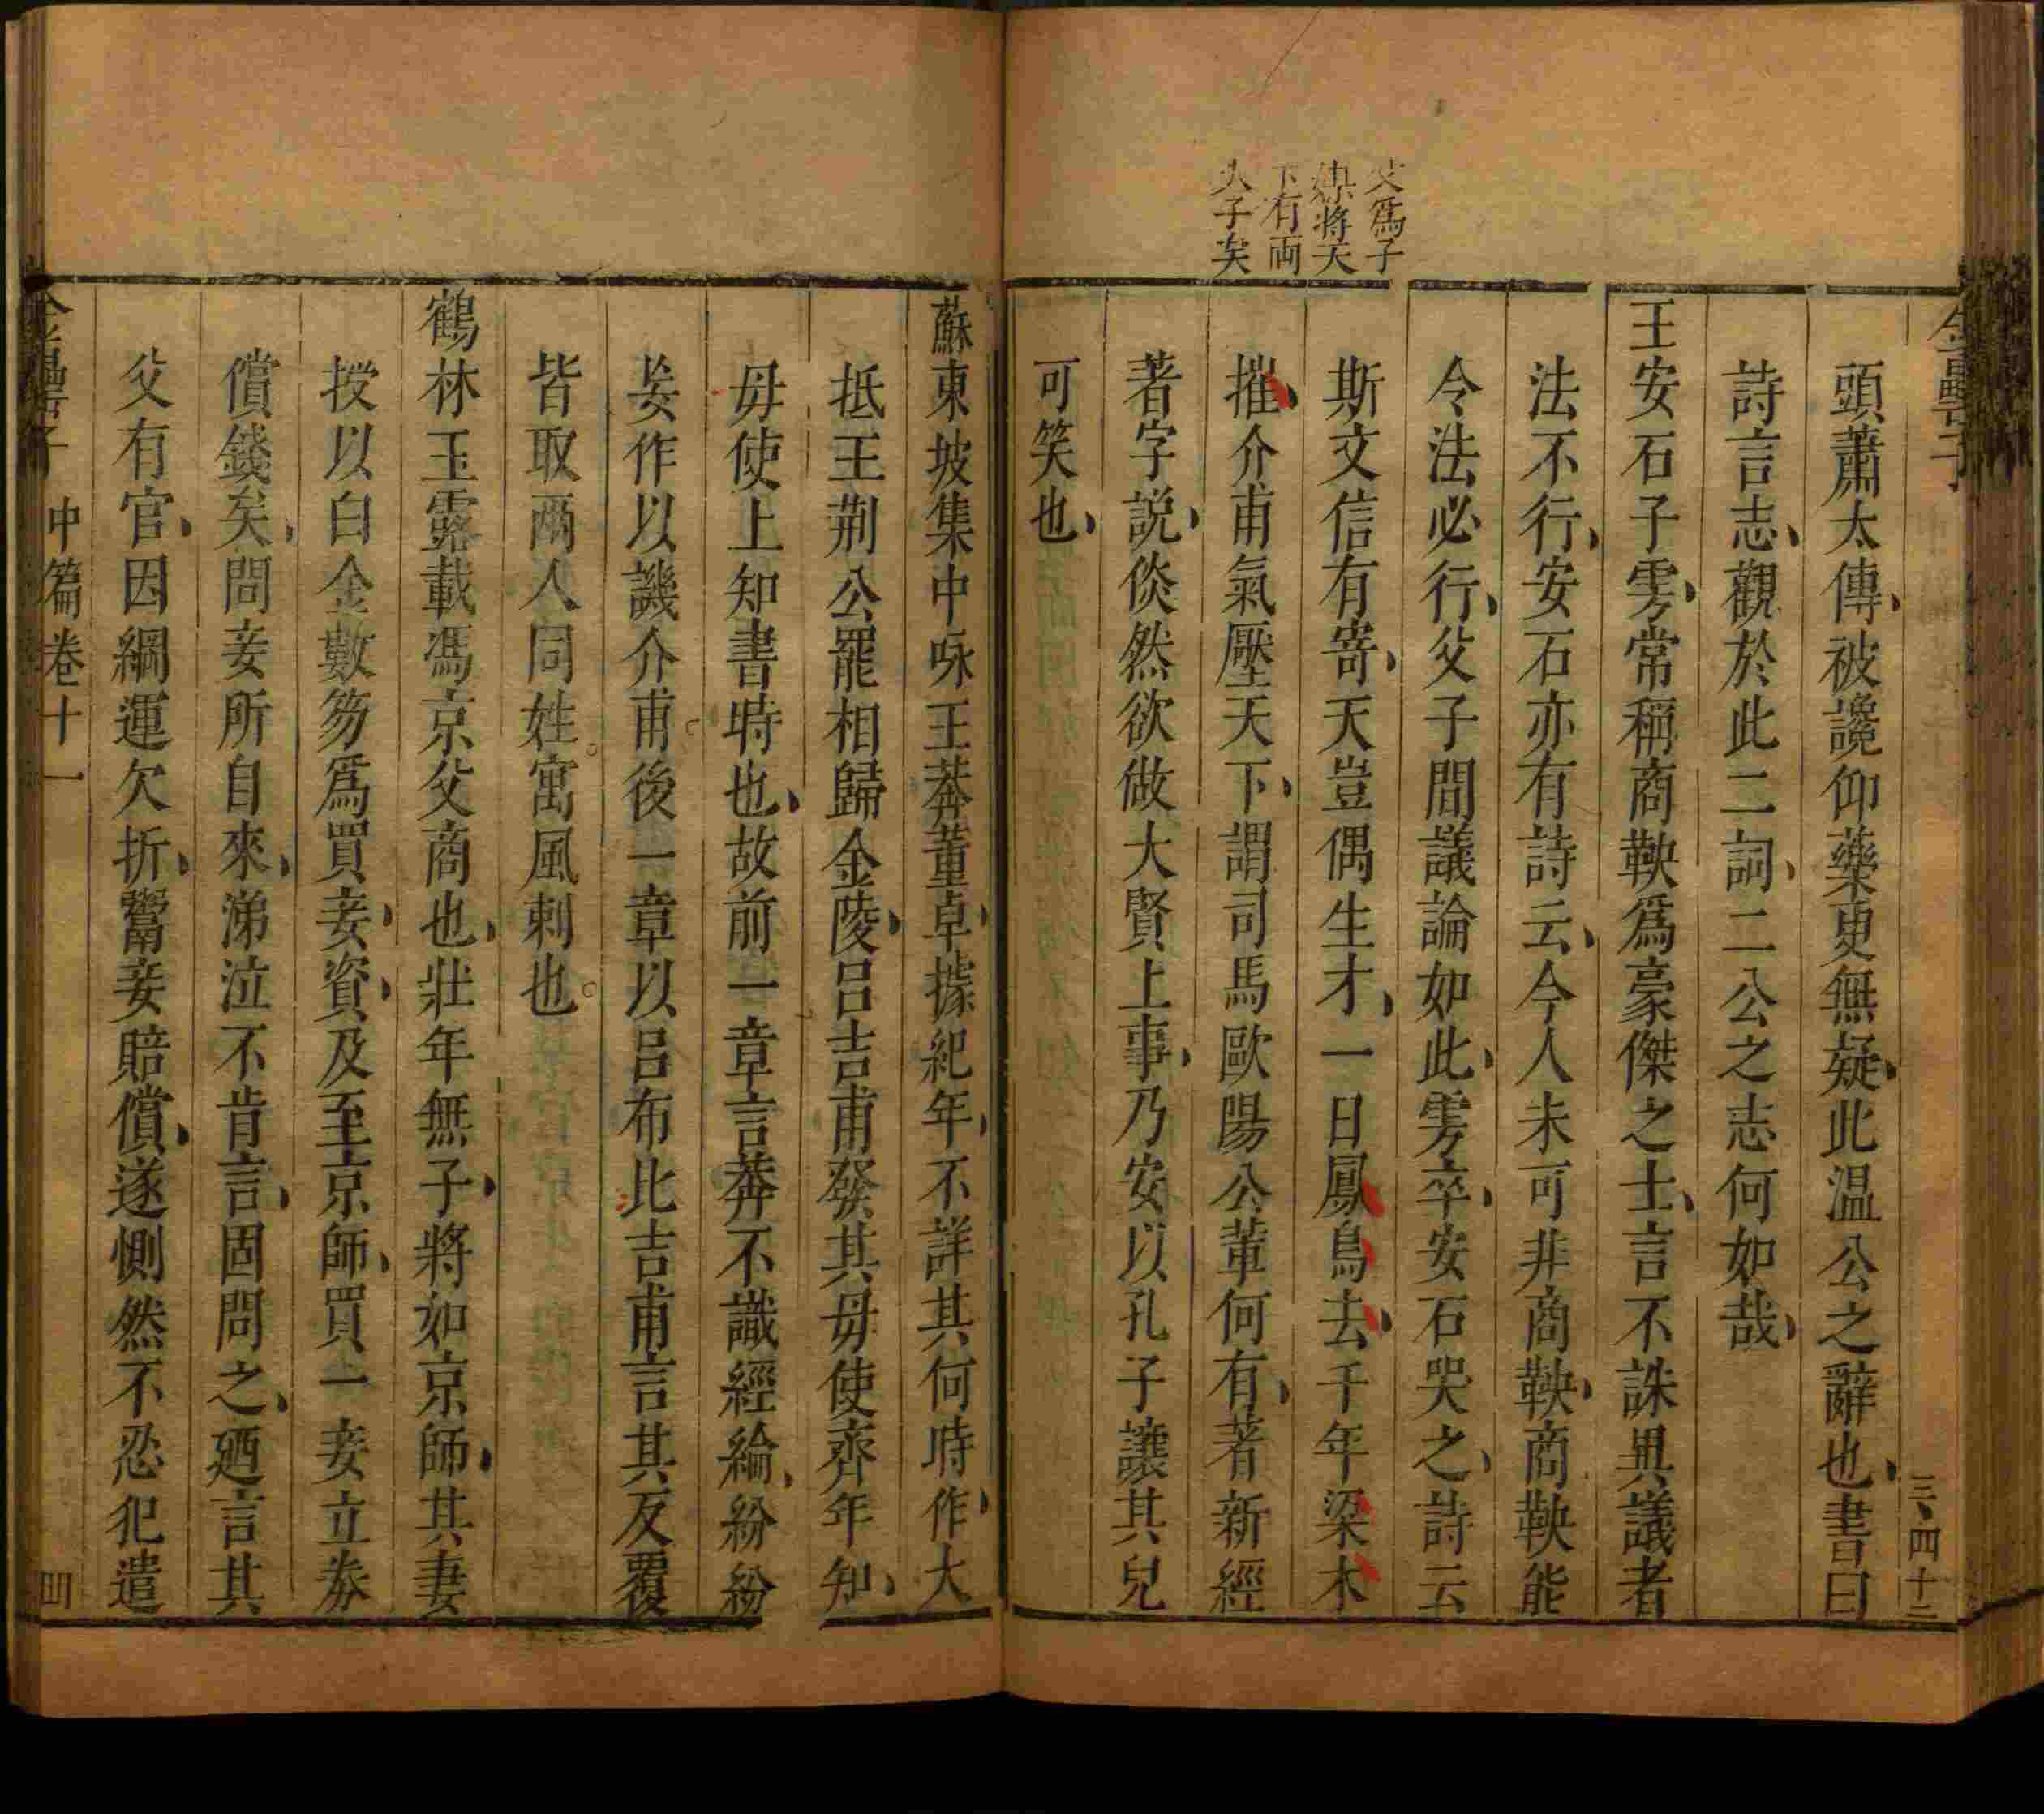 三、四十二
頭蕭太傅被讒仰藥更無疑此温公之辭也書曰
詩言志觀於此二詞二公之志何如哉
王安石子雱常稱商鞅爲豪傑之士言不誅異議者
法不行安石亦有詩云今人未可非商鞅商鞅能
令法必行父子間議論如此雱卒安石哭之詩云
斯文信有寄天豈偶生才一日鳳鳥去千年梁木
摧介甫氣壓天下謂司馬歐陽公輩何有著新經
著字説倓然欲做大賢上事乃安以孔子讓其兒
可笑也
父爲子
將天
下有両
夫子矣
蘇東坡集中咏王莽董卓據紀年不詳其何時作大
抵王荆公罷相歸金陵呂吉甫發其毋使齊年知
毋使上知書時也故前一章言莽不識經綸紛紛
妄作以譏介甫後一章以呂布比吉甫言其反覆
皆取兩人同姓寓風刺也
鶴林玉露載馮京父商也壯年無子將如京師其妻
授以白金數笏爲買妾資及至京師買一妾立券
償錢矣問妾所自來涕泣不肯言固問之廼言其
父有官因綱運欠折鬻妾賠償遂惻然不忍犯遣
中篇卷十一
四